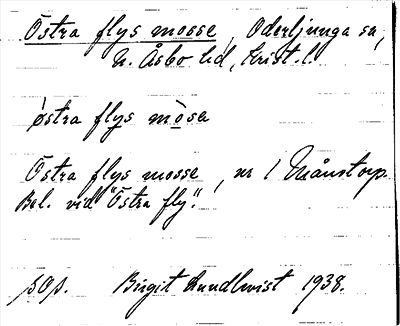 Östra flys mosse, Oderljunga sn,
N. Åsbo hd, Krist. l.
östra flys mòsa
Östra flys mosse, nr 1 Månstorp.
Bel. vid "Östra fly".
sOs. Birgit Lundkvist 1938.